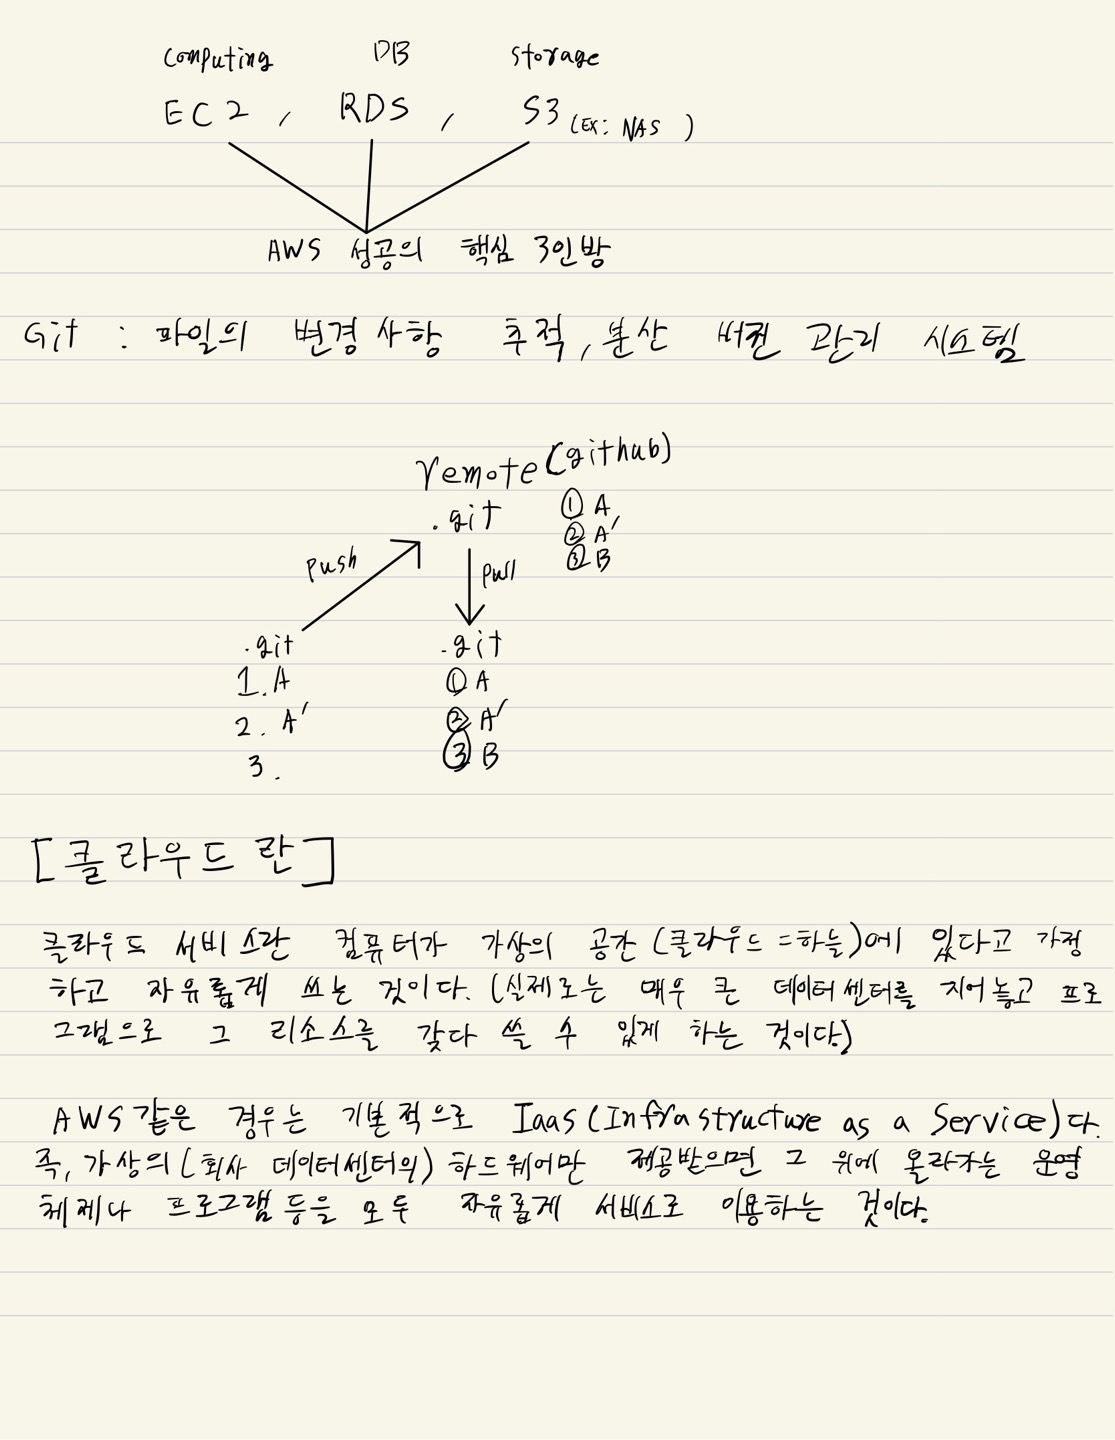 computing DB storage
EC2 , RDS , S3 (EX: NAS )
AWS 성공의 핵심 3인방
Git : 파일의 변경사항 추적, 분산 버전 관리 시스템
remote (github)
.git ① A
② A'
③ B
push pull
.git .git
1. A ① A
2. A' ② A'
3. ③ B
[클라우드란]
클라우드 서비스란 컴퓨터가 가상의 공간 (클라우드 = 하늘)에 있다고 가정
하고 자유롭게 쓰는 것이다. (실제로는 매우 큰 데이터센터를 지어놓고 프로
그램으로 그 리소스를 갖다 쓸 수 있게 하는 것이다.)
AWS 같은 경우는 기본적으로 Iaas (Infrastructure as a Service)다.
즉, 가상의 (회사 데이터센터의) 하드웨어만 제공받으면 그 위에 올라가는 운영
체제나 프로그램 등을 모두 자유롭게 서비스로 이용하는 것이다.